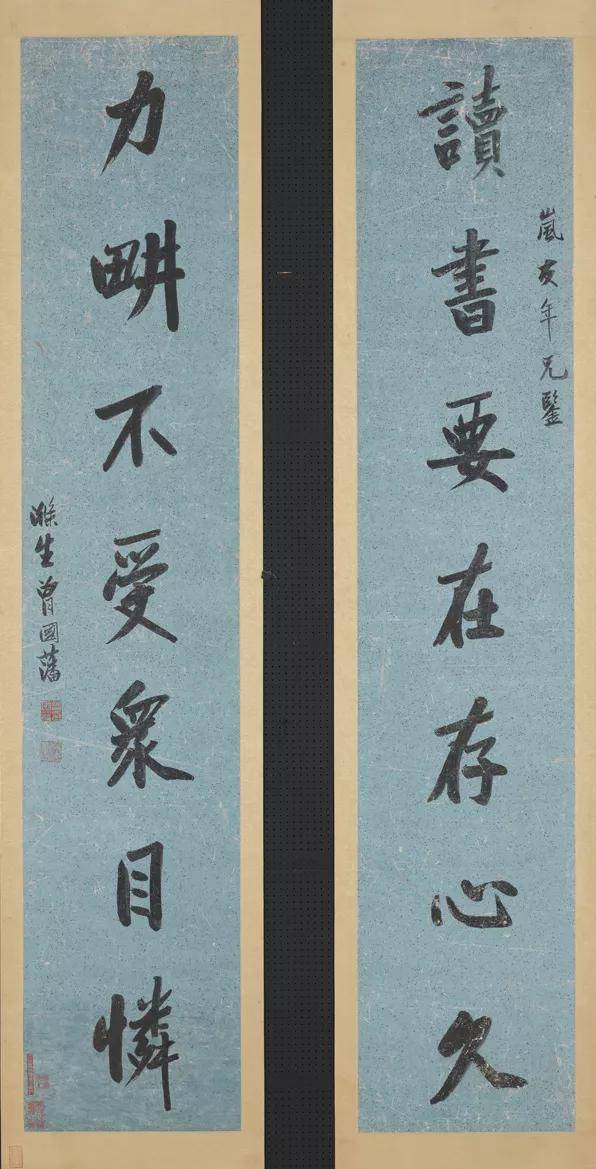 讀書要在存心久
嵐友年兄鑒
力畊不受眾目憐
滌生曾國藩